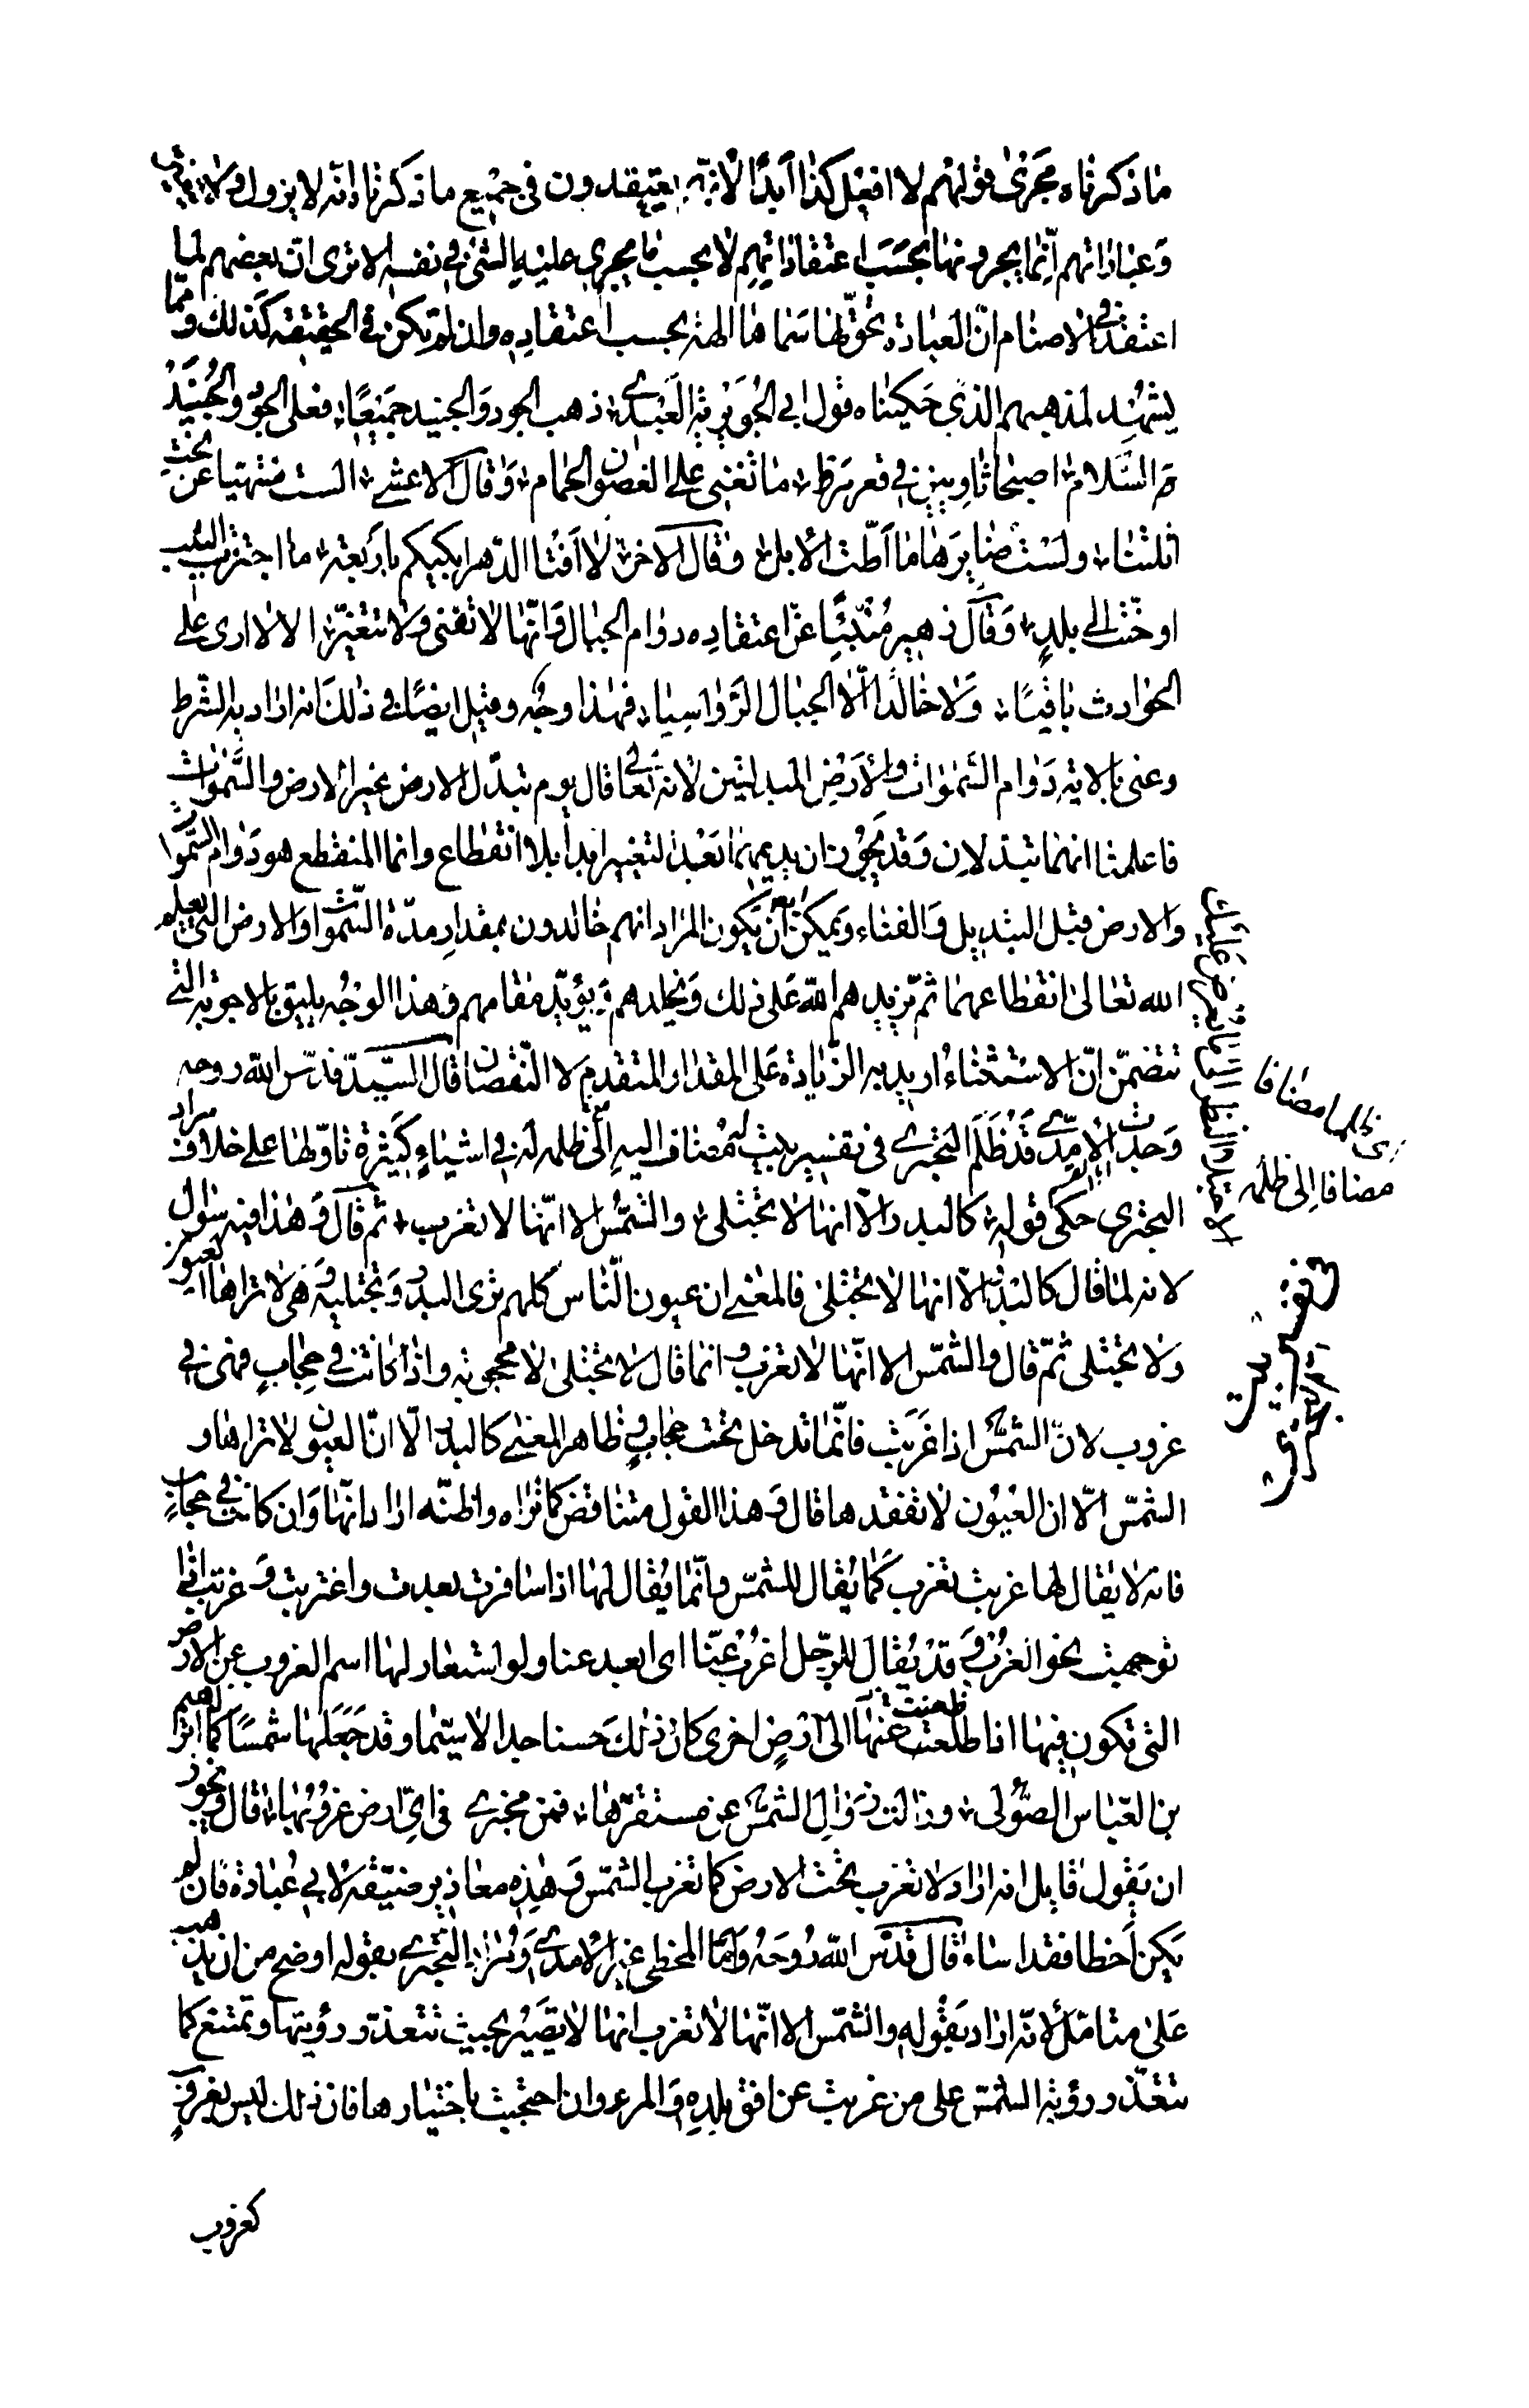 ما ذكرناه مجرى قولهم لا افعل كذا ابدا لانهم يعتقدون فى جميع ما ذكرناه انه لا يزول ولا يتغير
وعباداتهم انما يجرونها بحسب اعتقاداتهم لا بحسب ما يجرى عليه الشئ فى نفسه الا ترى ان بعضهم لما
اعتقد فى الاصنام ان العبادة تحق لها سماها الهة بحسب اعتقاده وان لم تكن فى الحقيقة كذلك ومما
يشهد لمذهبهم الذى حكيناه قول ابى الجويرية العبدى ذهب الجود والجنيد جميعا فعلى الجود والجنيد
م السلام اصبحا ثاويين فى قعر مرظ ما تغنى على الغصون الحمام وقال الاعشى الست منتهيا عن نحت
اثلتنا ولست ضايرها ما اطت الابل وقال الاخر لا افتا الدهر ابكيكم باربعة ما اجترت النيب
او حنت الى بلد وقال زهير منبئا عن اعتقاده دوام الجبال وانها لا تفنى ولا تتغير الا لا ارى على
الحوادث باقيا ولا خالدا الا الجبال الرواسيا فهذا وجه وقيل ايضا فى ذلك انه اراد به الشرط
وعنى بالاية دوام السموات والارض المبدلتين لانه تعالى قال يوم تبدل الارض غير الارض والسموات
فاعلمنا انهما تبدلان وقد يجوز ان يديمهما بعد التغيير ابدا بلا انقطاع وانما المنقطع هو دوام السموات
والارض قبل التبديل والفناء ويمكن ان يكون المراد انهم خالدون بمقدار مدة السموات والارض التى يعلم
الله تعالى انقطاعهما ثم يزيدهم الله على ذلك ويخلدهم ويؤبد مقامهم وهذا الوجه يليق بالاجوبة التى
تتضمن ان الاستثناء اريد به الزيادة على المقدار المتقدم لا النقصان قال السيد قدس الله روحه
وجدت الامدى قد ظلم البحترى فى تفسير بيت له مضاف اليه الى ظلمه له فى اشياء كثيرة تاولها على خلاف مراد
البحترى حكى قوله كالبدر الا انها لا تجتلى والشمس الا انها لا تغرب ثم قال وهذا فيه سؤال
لانه لما قال كالبدر الا انها لا تجتلى فالمعنى ان عيون الناس كلهم ترى البدر وتجتليه وهى لا تراها العيون
ولا تجتلى ثم قال والشمس الا انها لا تغرب وانما قال لا تجتلى لا محجوبة واذا كانت فى حجاب فهى فى
غروب لان الشمس اذا غربت فانما تدخل تحت حجاب وظاهر المعنى كالبدر الا ان العيون لا تراها و
الشمس الا ان العيون لا تفقدها قال وهذا القول متناقض كما تراه واظنه اراد انها وان كانت فى حجاب
فانه لا يقال لها غربت تغرب كما يقال للشمس وانما يقال لها اذا سافرت بعدت واغتربت وغربت اذا
توجهت نحو الغرب وقد يقال للرجل اغرب عنا اى ابعد عنا ولو استعار لها اسم الغروب عن الارض
التى تكون فيها اذا ظعنت عنها الى ارض اخرى كان ذلك حسنا جدا لا سيما وقد جعلها شمسا كما ابراهيم
بن العباس الصولى وزالت زوال الشمس عن مستقرها فمن مخبرى فى اى ارض غروبها قال ويجوز
ان يقول قايل انه اراد ولا تغرب تحت الارض كما تغرب الشمس وهذه معاذير ضيقة لابى عبادة فان لم
يكن اخطا فقد اساء قال قدس الله روحه وانما المخطى غير الامدى ومراد البحترى بقوله اوضح من ان يذهب
على متامل لانه اراد بقوله والشمس الا انها لا تغرب انها لا يصير بحيث تتعذر رؤيتها وتمتنع كما
تتعذر رؤية الشمس على من غربت عن افق بلده والمرء وان احتجبت باختيارها فان ذلك ليس بغروب
مضافا الى ظلمه
كغروب